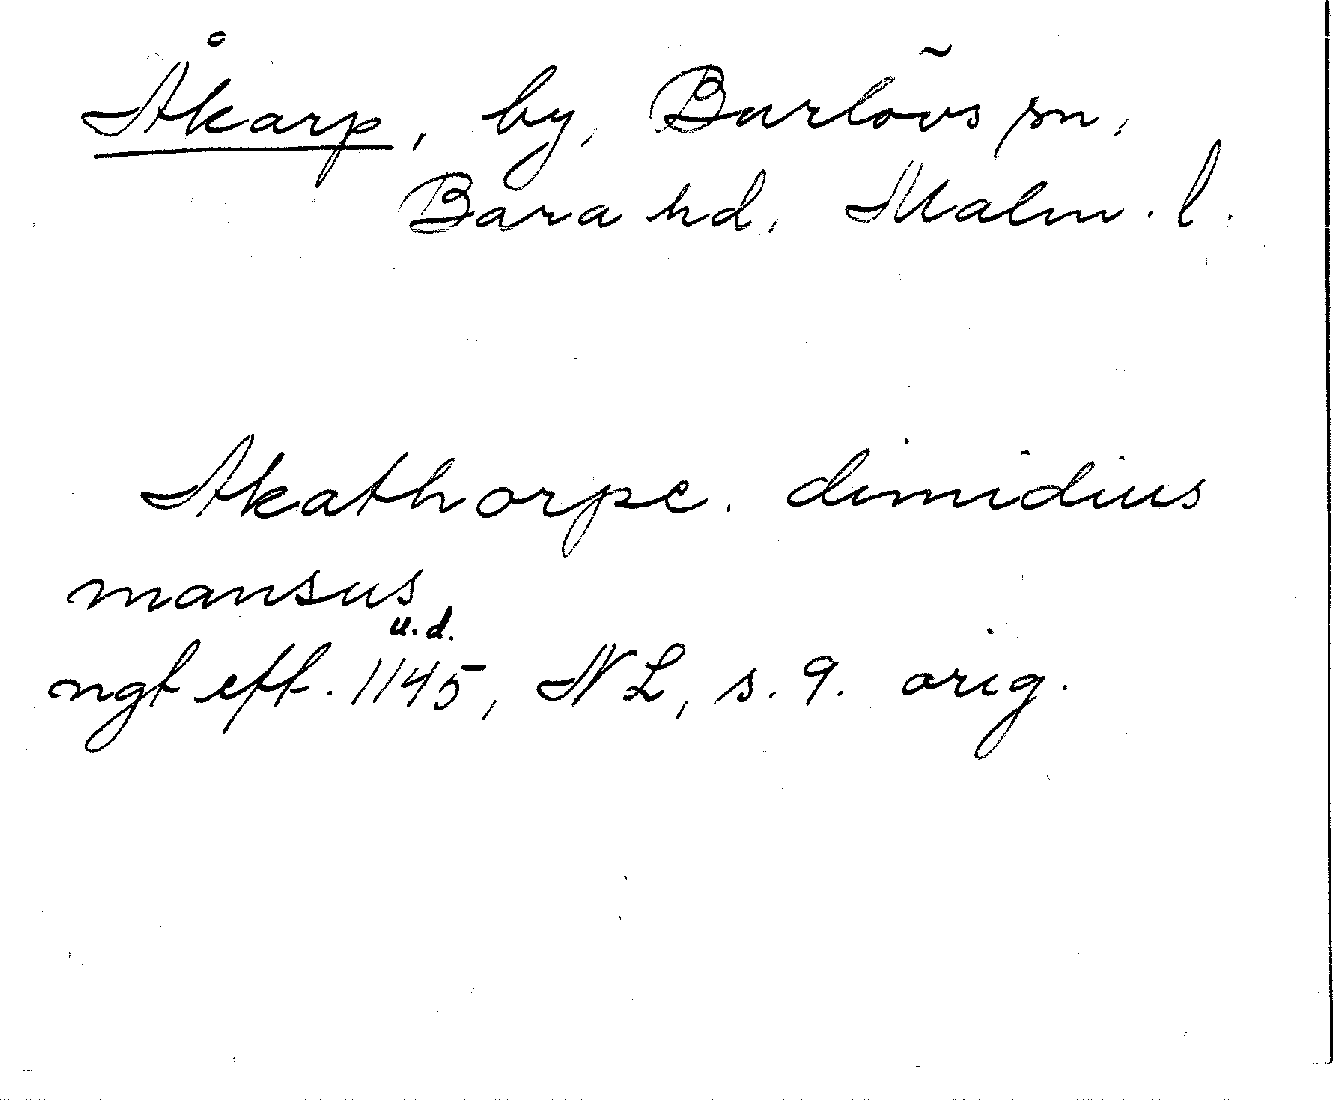 Åkarp, by, Burlövs sn,
Bara hd, Malm. l.
Akathorpe. dimidius
mansus
u.d.
ngt eft. 1145, NL, s. 9. orig.